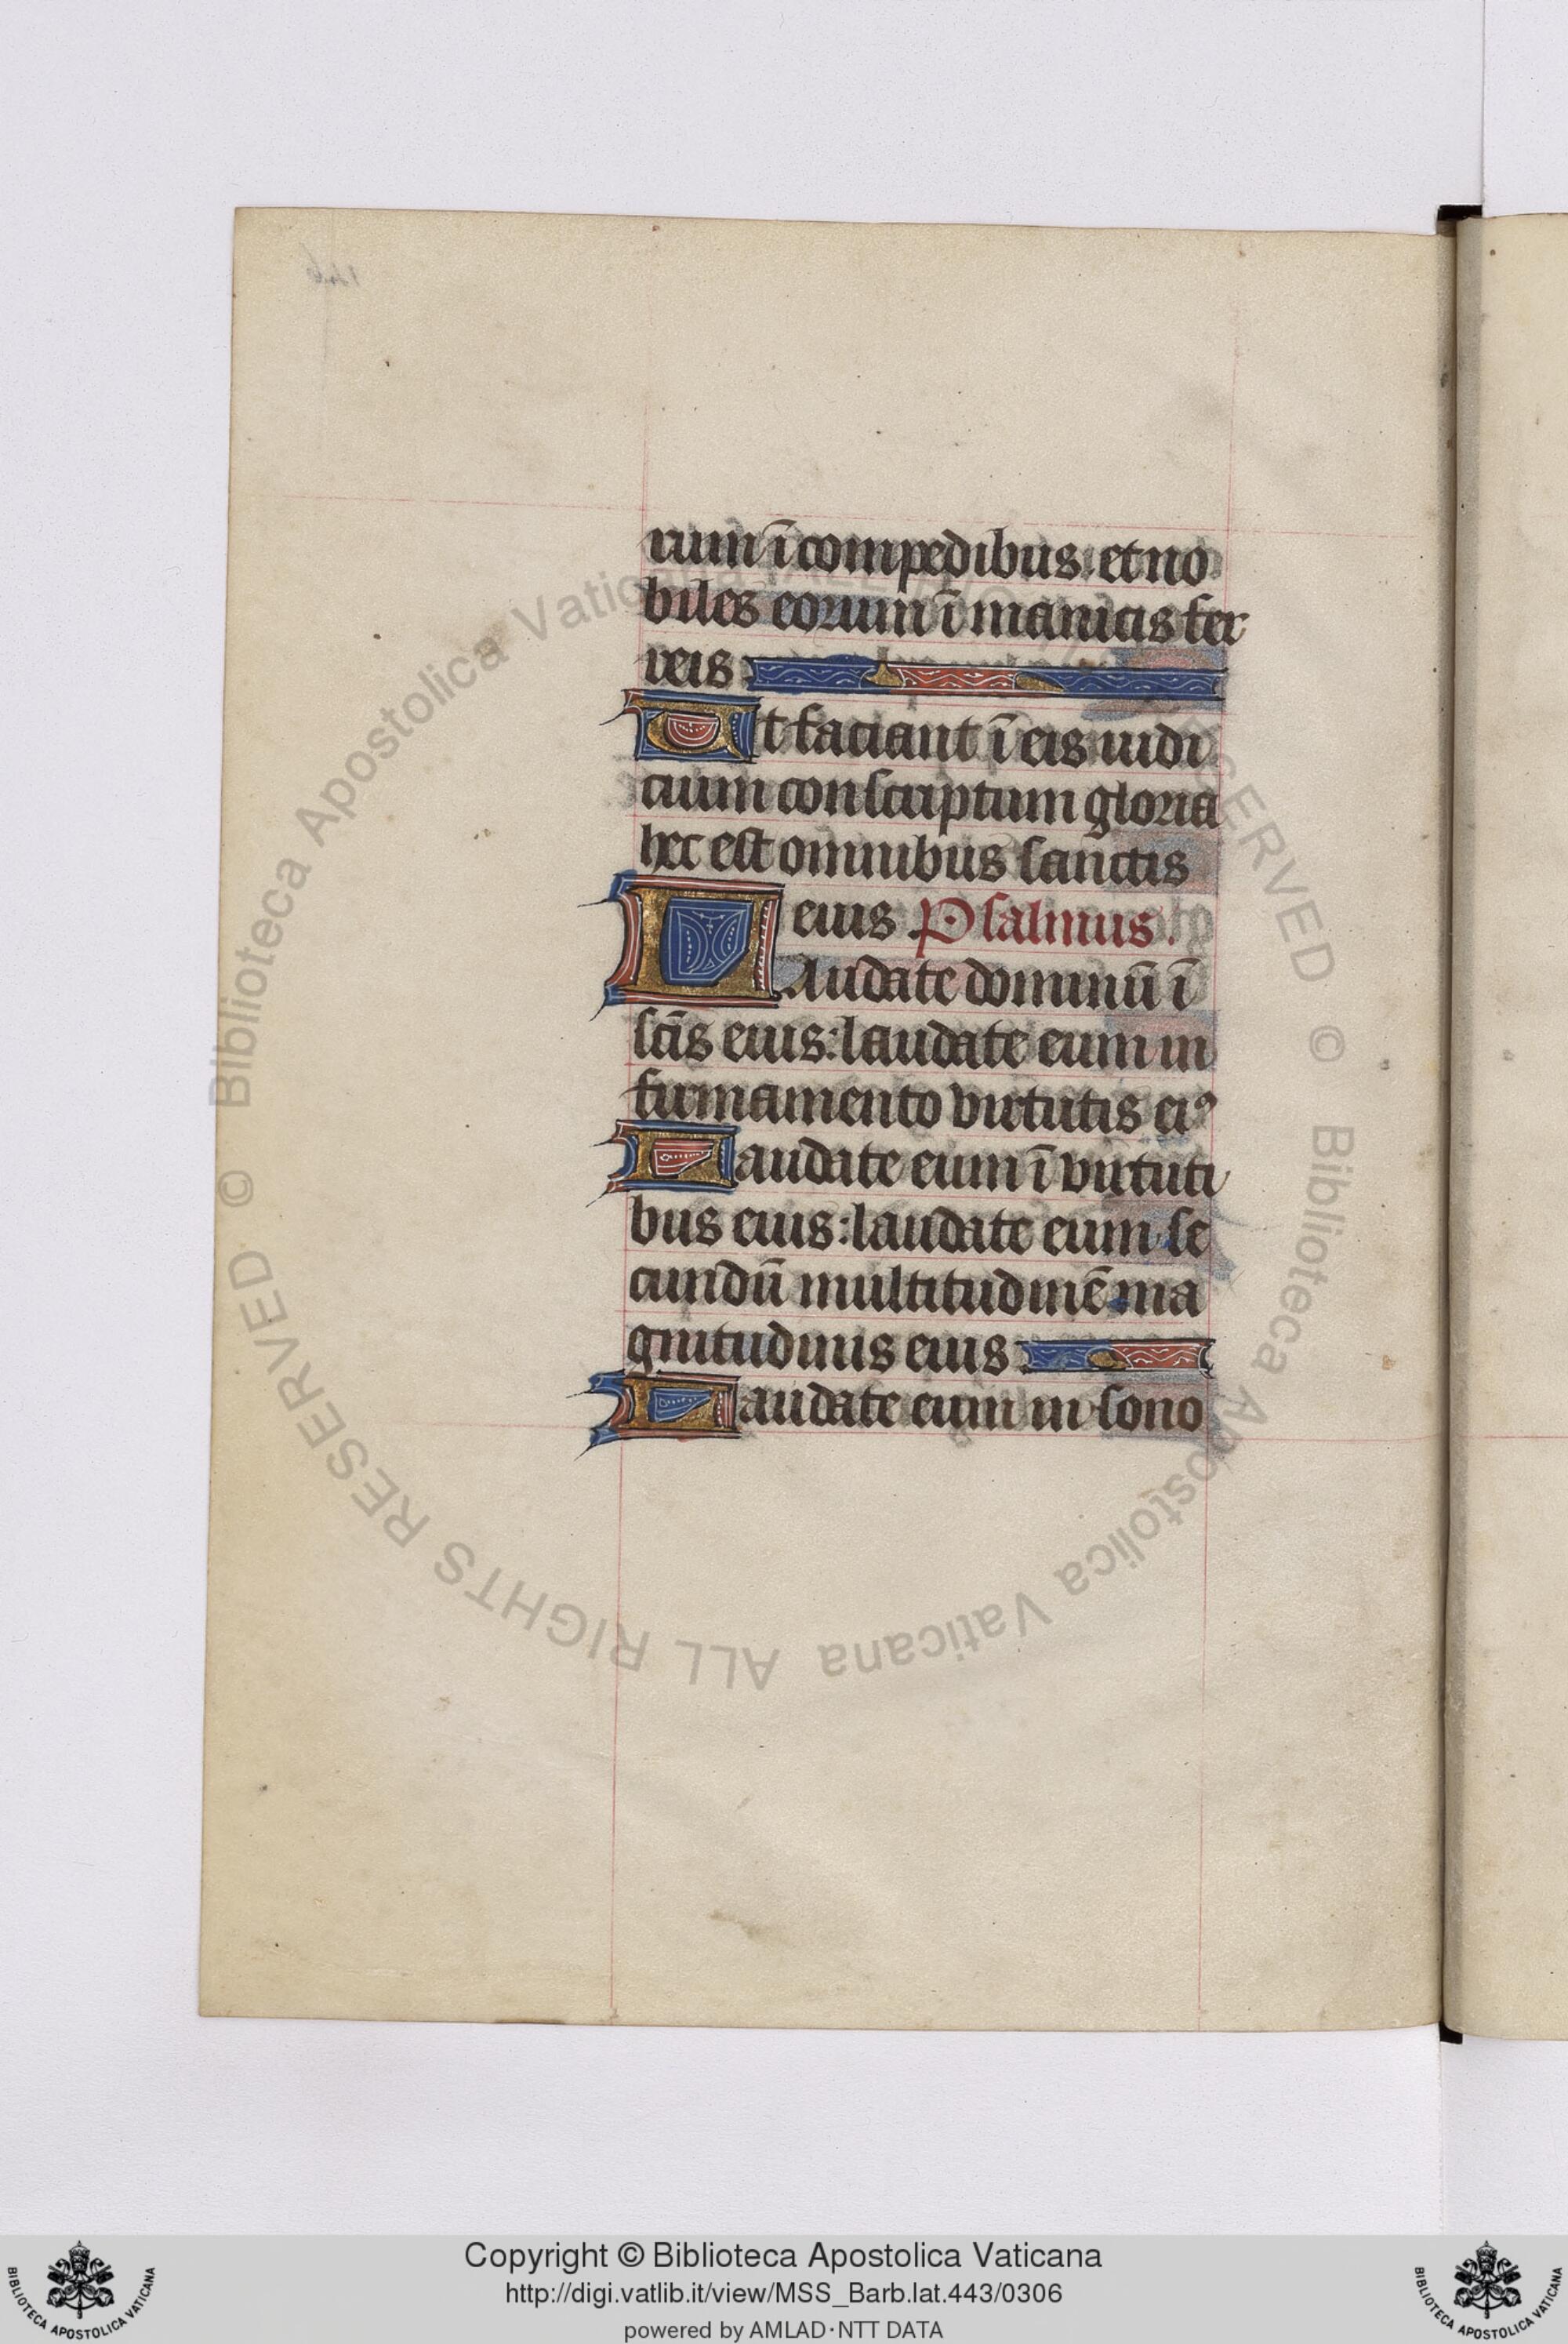 rum ī compedibus: et no
biles eorum ī manicis fer
reis
Et faciant ī eis iudi
cium conscriptum gloria
hec est omnibus sanctis
eius Psalmus.
Laudate dominū ī
scīs eius: laudate eum in
firmamento virtutis eiꝰ
Laudate eum ī virtuti
bus eius: laudate eum se
cundū multitudinē ma
gnitudinis eius
Laudate eum in sono
© Biblioteca Apostolica Vaticana ALL RIGHTS RESERVED
© Biblioteca Apostolica Vaticana ALL RIGHTS RESERVED
Copyright © Biblioteca Apostolica Vaticana
http://digi.vatlib.it/view/MSS_Barb.lat.443/0306
powered by AMLAD·NTT DATA
BIBLIOTECA APOSTOLICA VATICANA
BIBLIOTECA APOSTOLICA VATICANA